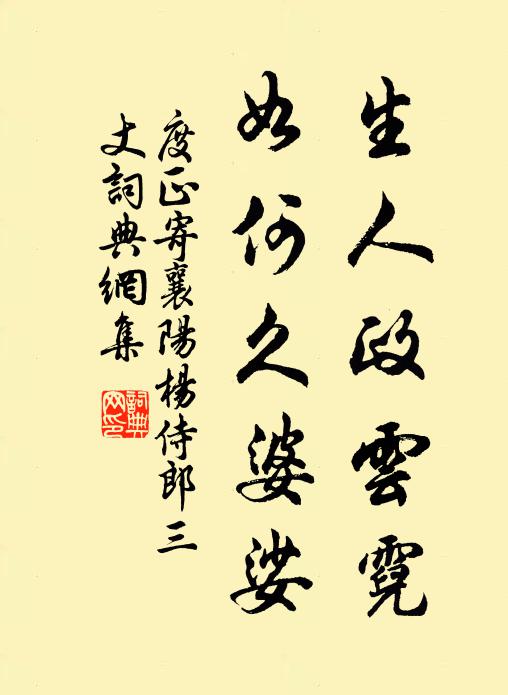 生人政雲霓
如何久婆娑
度正寄襄陽楊侍郎三
丈詞典網集
詞典網印